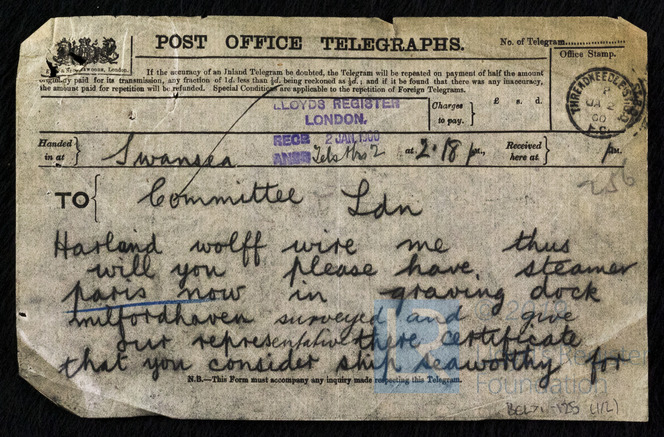 POST OFFICE TELEGRAPHS.
No. of Telegram
If the accuracy of an Inland Telegram be doubted, the Telegram will be repeated on payment of half the amount
originally paid for its transmission, any fraction of 1d. less than ½d. being reckoned as ½d.; and if it be found that there was any inaccuracy,
the amount paid for repetition will be refunded. Special Conditions are applicable to the repetition of Foreign Telegrams.
Office Stamp.
LLOYDS REGISTER
LONDON.
RECD 2 JAN. 1900
ANSD Tels Mrs 2
Charges to pay. £ s. d.
THREADNEEDLE
JA 2
00
Handed in at Swansea at 2.18 pm., Received here at
256
TO Committee Ldn
Harland wolff wire me thus
will you please have steamer
paris now in graving dock
milfordhaven surveyed and give
our representative there certificate
that you consider ship seaworthy for
N.B.—This Form must accompany any inquiry made respecting this Telegram.
Foundation
(1/2)